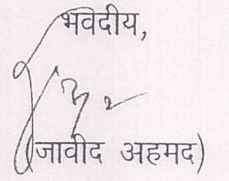 भवदीय,
(जावीद अहमद)